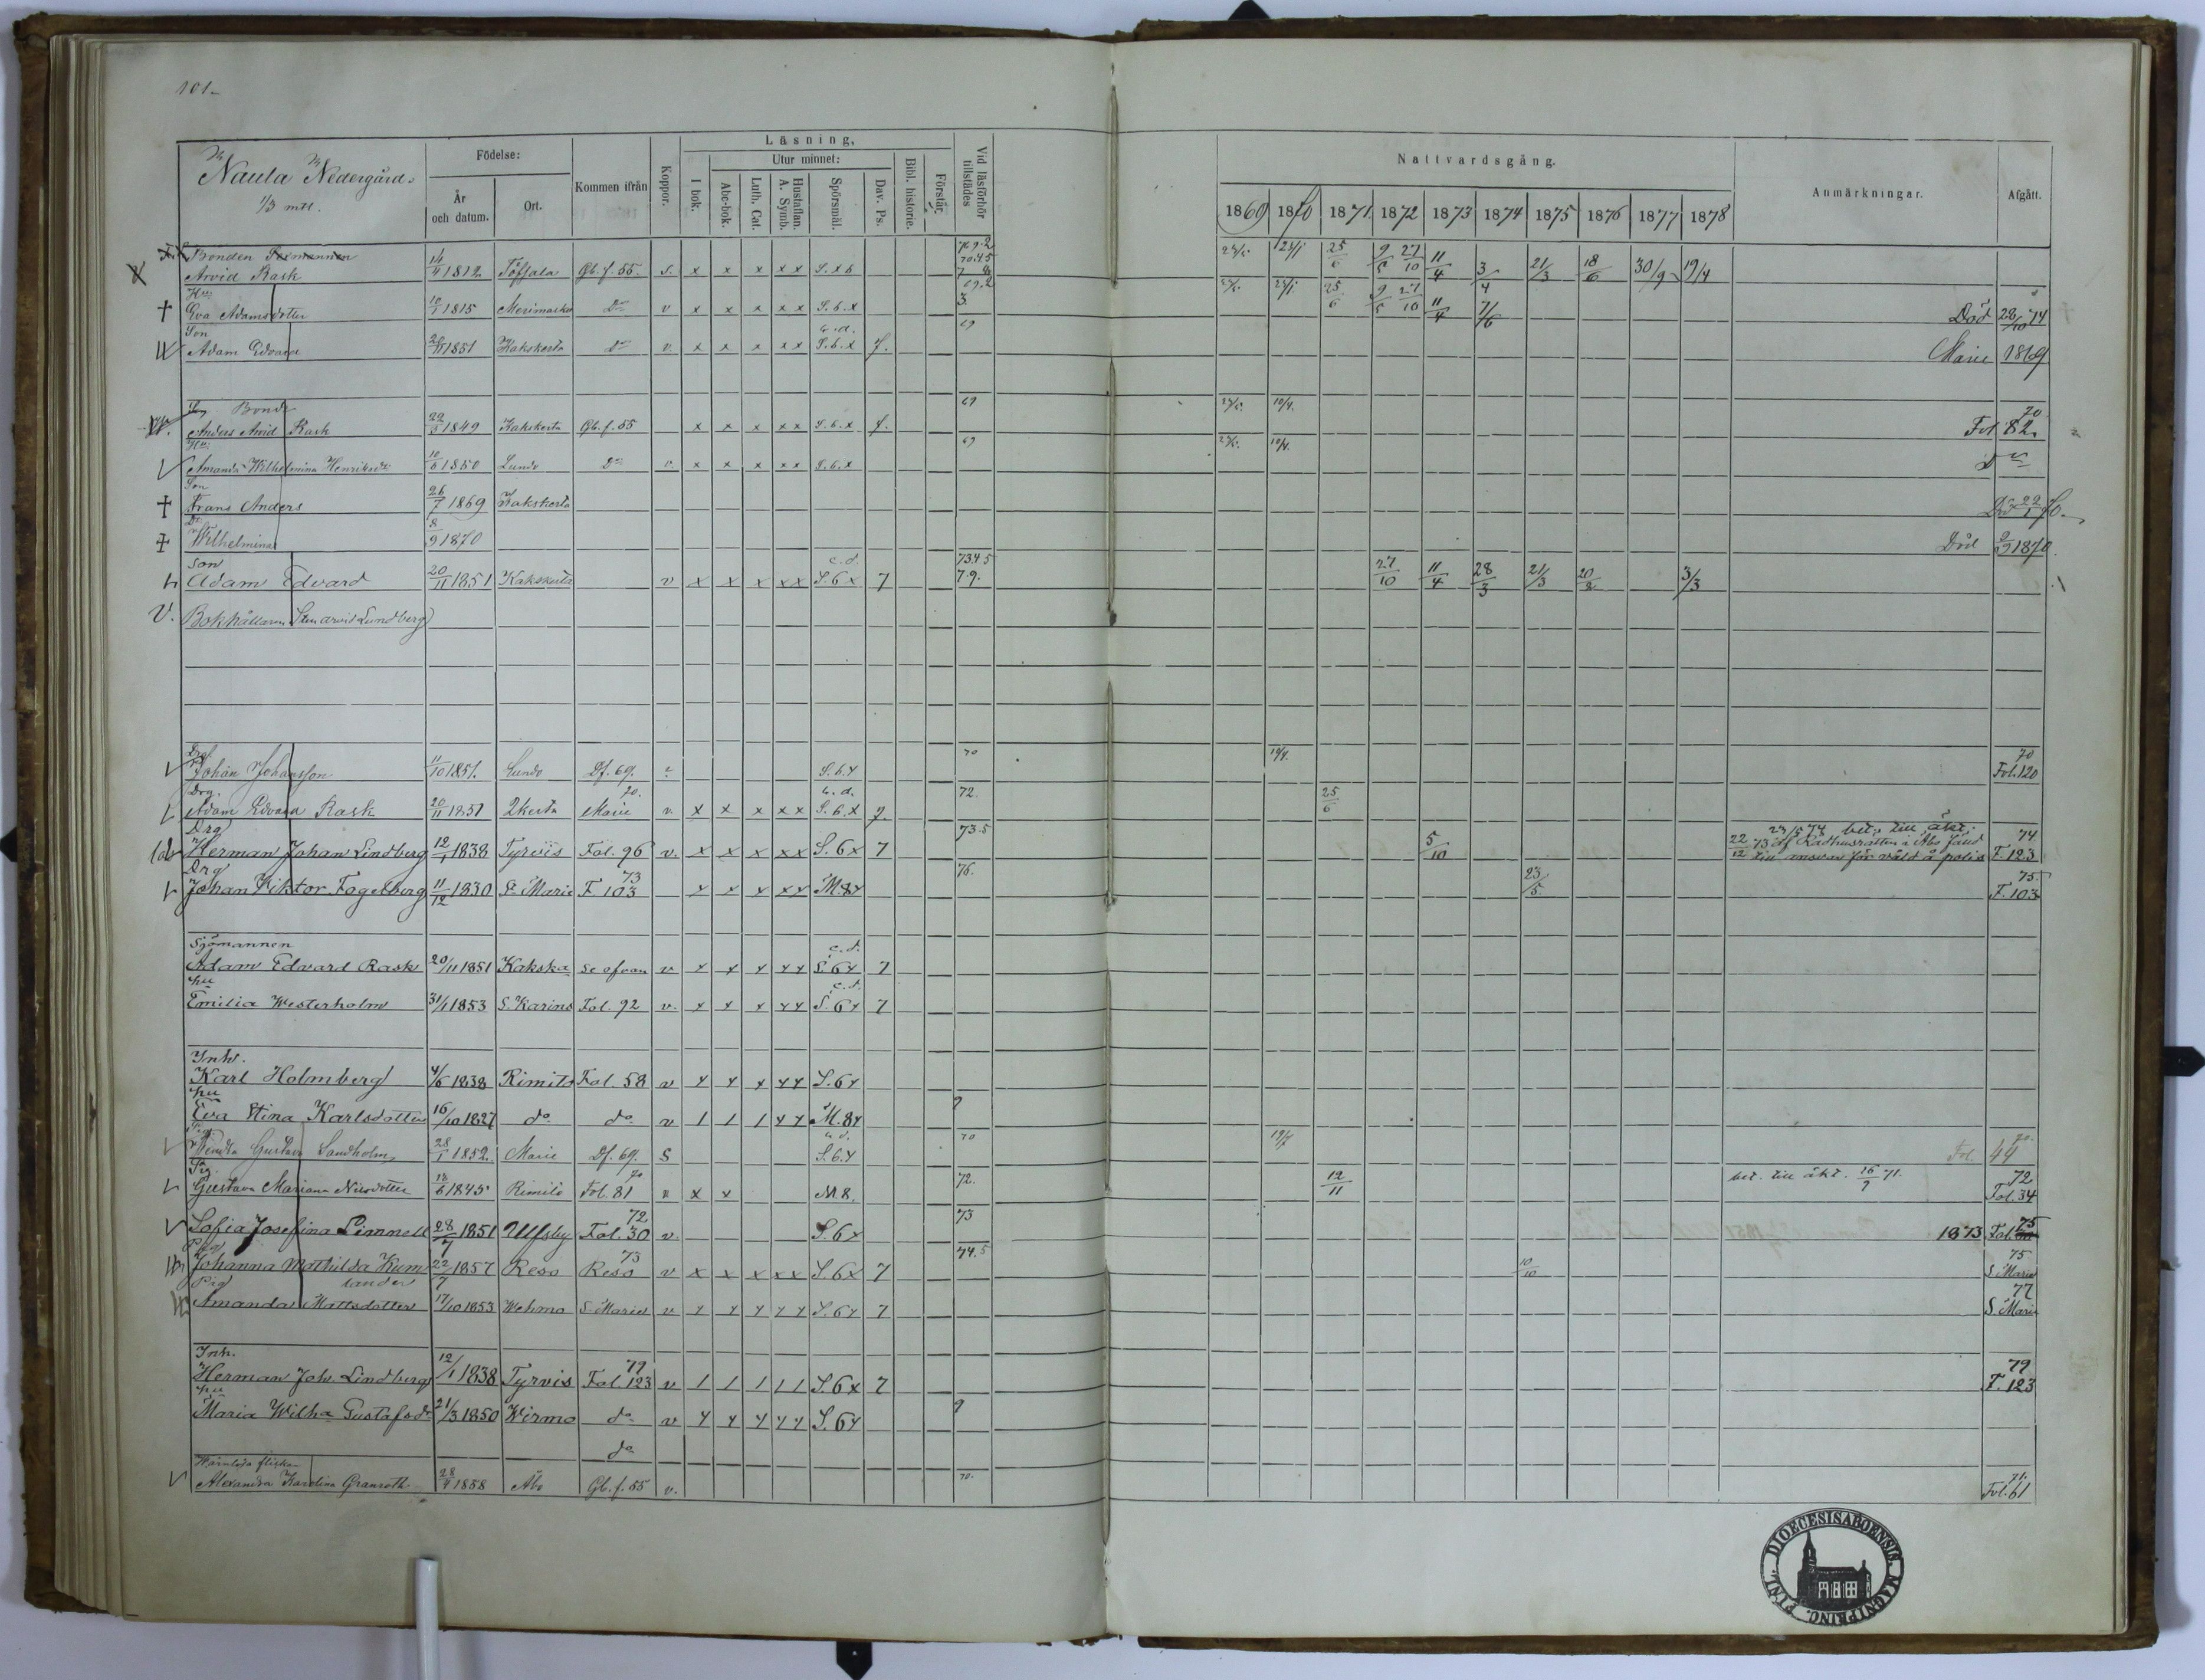 101.
Nauta Nedergård.
1/3 mtl.
Födelse:
År och datum.
Ort.
Kommen ifrån
Koppor.
Läsning,
I bok.
Utur minnet:
Abc-bok.
Luth. Cat.
Hustaflan. A. Symb.
Spörsmål.
Dav. Ps.
Bibl. historie.
Förstår.
Vid läsförhör tillstädes
Nattvardsgång.
1869 1870 1871 1872 1873 1874 1875 1876 1877 1878
Anmärkningar.
Afgått.
Bonden
Arvid Rask 14/4 1812 Töffsala Gb. f. 55. s. x x x x x S. x 6 25/6 9/5 27/10 11/4 3/4 21/3 18/6 30/9 19/4
Hu
Eva Adamsdotter 10/1 1815 Merimasku Do v x x x x x S. 6. x 3 25/6 9/5 27/10 11/4 7/6 Död 28/10 74
Son
Adam Edvard 20/11 1851 Kakskerta Do v. x x x x x S. 6. x 7. 69 Marie 1869
Son Bonde
Anders Arvid Rask 22/3 1849 Kakskerta Gb. f. 55 x x x x x S. 6. x 7. 69 10/4. 70 Fol 82.
Hu
Amanda Wilhelmina Henriksdr 10/6 1850 Lundo Do v. x x x x x S. 6. x 69 10/4. Do
Son
Frans Anders 26/7 1869 Kakskerta Död 22/1 70.
Dr
Wilhelmina 8/9 1870 Död 9/9 1870.
Son
Adam Edvard 20/11 1851 Kakskerta v x x x x x S. 6 x 7 73.4 5 7.9. 27/10 11/4 28/3 21/3 20/8 3/3
Bokhållaren Sten Arvid Lundberg
Drg
Johan Johansson 11/10 1851. Lundo Df. 69. S. 6. x 70 19/4. 70 Fol. 120
Drg.
Adam Edvard Rask 20/11 1851 2kerta Marie 70. v. x x x x x S. 6. x 7. 72. 25/6
Drg
Herman Johan Lindberg 12/1 1838 Tyrvis Fol. 96 v. x x x x x S. 6 x 7 73.5 5/10 23/5 74 bet. till äkt. 22/12 73 af Rådhusrätten i Åbo fäld till ansvar för våld å polis 74 F. 123
Drg
Johan Viktor Fagelberg 11/12 1830 St Marie F. 103 73 x x x x x M. 8 x 76. 23/5. 75. F. 103
Sjömannen
Adam Edward Rask 20/11 1851 Kakska se ofvan v x x x x x S. 6 x 7
hu
Emilia Westerholm 31/1 1853 S. Karins Fol. 92 v. x x x x x S. 6 x 7
Inh.
Karl Holmberg 4/6 1838 Rimito Fol. 58 v x x x x x S. 6 x
hu
Eva Stina Karlsdotter 16/10 1827 do do v 1 1 1 x x M. 8 x 9
Gustava Sandholm 28/1 1852. Marie Df. 69. S S. 6. x 70 19/7 70. Fol. 44
Pig.
Gustava Mariana Nilsdotter 18/6 1845 Rimito Fol. 81 70 v x x M. 8. 72. 12/11 bet. till äkt. 16/9 71. 72 Fol. 34
Sofia Josefina Limnell 28/7 1851 Ulfsby Fol. 30 72 v. S. 6 x 73 1873 Fol. 75
Pig
Johanna Mathilda Kumlander 22/7 1857 Reso Reso 73 v x x x x x S. 6 x 7 74.5 10/10 75 S. Marie
Pig
Amanda Mattsdotter 17/10 1853 Wehmo S. Marie v x x x x x S. 6 x 7 77 S. Marie
Inh.
Herman Joh. Lindberg 12/1 1838 Tyrvis Fol. 123 79 v 1 1 1 1 1 S. 6 x 7 79 F. 123
hu
Maria Wilha Gustafsdr 21/3 1850 Wirmo do v x x x x x S. 6 x 9
do
Wärnlösa flickan
Alexandra Karolina Granroth 28/4 1858 Åbo Gb. f. 55 v. 70. 71. Fol. 61
DIOECESIS ABOENSIS. MAGNI PRINC. FINL.